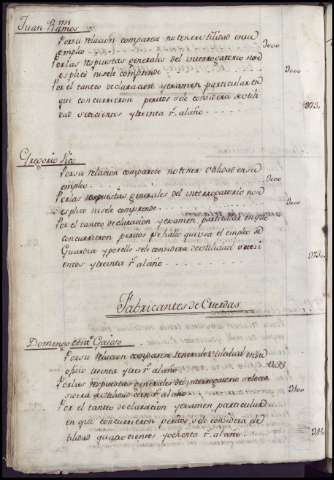 Juan Ramos
Por su relación comparece no tener utilidad en su
empleo 0000
Por las respuestas generales del interrogatorio no se
esplicó ni se le comprende 0000
Por el tanteo declaracion y examen particular en
que concurrieron peritos se le considera de utili
dad y treinta r.s al año
Gregorio
Por su relación comparece no tener utilidad en su
empleo 0000
Por las respuestas generales del interrogatorio no se
esplica ni se le comprende 0000
Por el tanteo declaracion y examen particular en que
concurrieron peritos se halló que usa el empleo de
Guardia y por ello se le considera de utilidad
cientos y treinta r.s al año
Fabricantes de Cuerdas
Domingo
Por su relacion comparece tener de utilidad en su
oficio ciento y tres r.s al año
Por las respuestas generales del interrogatorio se le con
sidera de utilidad cien r.s al año 0100
Por el tanteo declaracion y examen particular
en que concurrieron peritos se le considera de u
tilidad quatrocientos y ochenta r.s al año